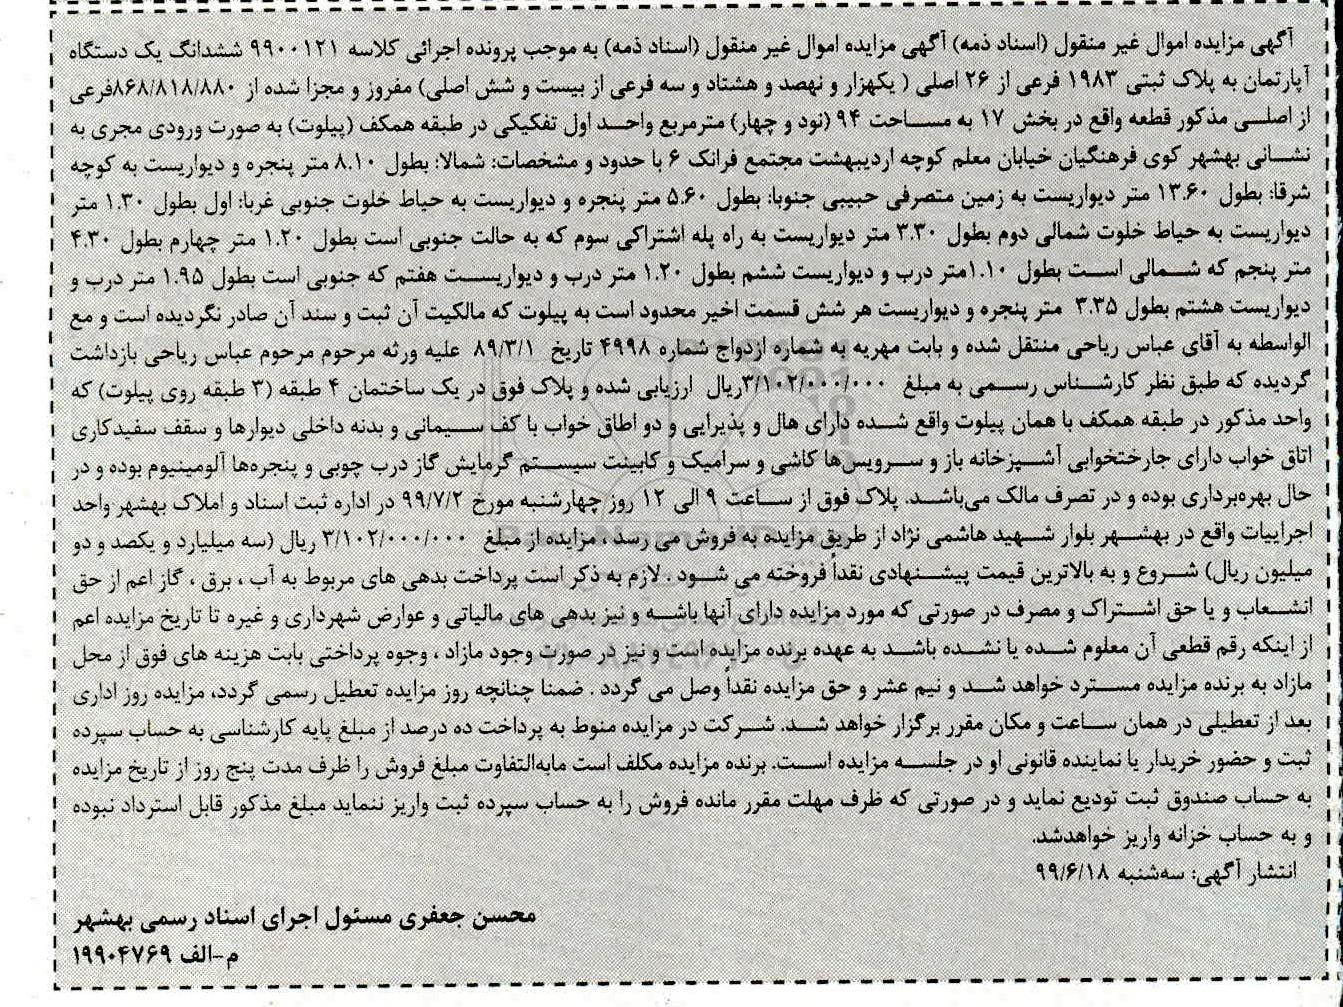 آگهی مزایده اموال غیر منقول (اسناد ذمه) آگهی مزایده اموال غیر منقول (اسناد ذمه) به موجب پرونده اجرائی کلاسه ۹۹۰۰۱۲۱ ششدانگ یک دستگاه
آپارتمان به پلاک ثبتی ۱۹۸۳ فرعی از ۲۶ اصلی ( یکهزار و نهصد و هشتاد و سه فرعی از بیست و شش اصلی) مفروز و مجزا شده از ۸۶۸/۸۱۸/۸۸۰فرعی
از اصلی مذکور قطعه واقع در بخش ۱۷ به مساحت ۹۴ (نود و چهار) مترمربع واحد اول تفکیکی در طبقه همکف (پیلوت) به صورت ورودی مجری به
نشانی بهشهر کوی فرهنگیان خیابان معلم کوچه اردیبهشت مجتمع فرانک ۶ با حدود و مشخصات: شمالا: بطول ۸.۱۰ متر پنجره و دیواریست به کوچه
شرقا: بطول ۱۳.۶۰ متر دیواریست به زمین متصرفی حبیبی جنوبا: بطول ۵.۶۰ متر پنجره و دیواریست به حیاط خلوت جنوبی غربا: اول بطول ۱.۳۰ متر
دیواریست به حیاط خلوت شمالی دوم بطول ۳.۳۰ متر دیواریست به راه پله اشتراکی سوم که به حالت جنوبی است بطول ۱.۲۰ متر چهارم بطول ۴.۳۰
متر پنجم که شمالی است بطول ۱.۱۰متر درب و دیواریست ششم بطول ۱.۲۰ متر درب و دیواریست هفتم که جنوبی است بطول ۱.۹۵ متر درب و
دیواریست هشتم بطول ۳.۳۵ متر پنجره و دیواریست هر شش قسمت اخیر محدود است به پیلوت که مالکیت آن ثبت و سند آن صادر نگردیده است و مع
الواسطه به آقای عباس ریاحی منتقل شده و بابت مهریه به شماره ازدواج شماره ۴۹۹۸ تاریخ ۸۹/۳/۱ علیه ورثه مرحوم مرحوم عباس ریاحی بازداشت
گردیده که طبق نظر کارشناس رسمی به مبلغ ۳/۱۰۲/۰۰۰/۰۰۰ریال ارزیابی شده و پلاک فوق در یک ساختمان ۴ طبقه (۳ طبقه روی پیلوت) که
واحد مذکور در طبقه همکف با همان پیلوت واقع شده دارای هال و پذیرایی و دو اطاق خواب با کف سیمانی و بدنه داخلی دیوارها و سقف سفیدکاری
اتاق خواب دارای جارختخوابی آشپزخانه باز و سرویس‌ها کاشی و سرامیک و کابینت سیستم گرمایش گاز درب چوبی و پنجره‌ها آلومینیوم بوده و در
حال بهره‌برداری بوده و در تصرف مالک می‌باشد. پلاک فوق از ساعت ۹ الی ۱۲ روز چهارشنبه مورخ ۹۹/۷/۲ در اداره ثبت اسناد و املاک بهشهر واحد
اجراییات واقع در بهشهر بلوار شهید هاشمی نژاد از طریق مزایده به فروش می رسد ، مزایده از مبلغ ۳/۱۰۲/۰۰۰/۰۰۰ ریال (سه میلیارد و یکصد و دو
میلیون ریال) شروع و به بالاترین قیمت پیشنهادی نقداً فروخته می شود . لازم به ذکر است پرداخت بدهی های مربوط به آب ، برق ، گاز اعم از حق
انشعاب و یا حق اشتراک و مصرف در صورتی که مورد مزایده دارای آنها باشه و نیز بدهی های مالیاتی و عوارض شهرداری و غیره تا تاریخ مزایده اعم
از اینکه رقم قطعی آن معلوم شده یا نشده باشد به عهده برنده مزایده است و نیز در صورت وجود مازاد ، وجوه پرداختی بابت هزینه های فوق از محل
مازاد به برنده مزایده مسترد خواهد شد و نیم عشر و حق مزایده نقداً وصل می گردد . ضمنا چنانچه روز مزایده تعطیل رسمی گردد، مزایده روز اداری
بعد از تعطیلی در همان ساعت و مکان مقرر برگزار خواهد شد. شرکت در مزایده منوط به پرداخت ده درصد از مبلغ پایه کارشناسی به حساب سپرده
ثبت و حضور خریدار یا نماینده قانونی او در جلسه مزایده است. برنده مزایده مکلف است مابه‌التفاوت مبلغ فروش را ظرف مدت پنج روز از تاریخ مزایده
به حساب صندوق ثبت تودیع نماید و در صورتی که ظرف مهلت مقرر مانده فروش را به حساب سپرده ثبت واریز ننماید مبلغ مذکور قابل استرداد نبوده
و به حساب خزانه واریز خواهدشد.
انتشار آگهی: سه‌شنبه ۹۹/۶/۱۸
محسن جعفری مسئول اجرای اسناد رسمی بهشهر
م-الف ۱۹۹۰۴۷۶۹